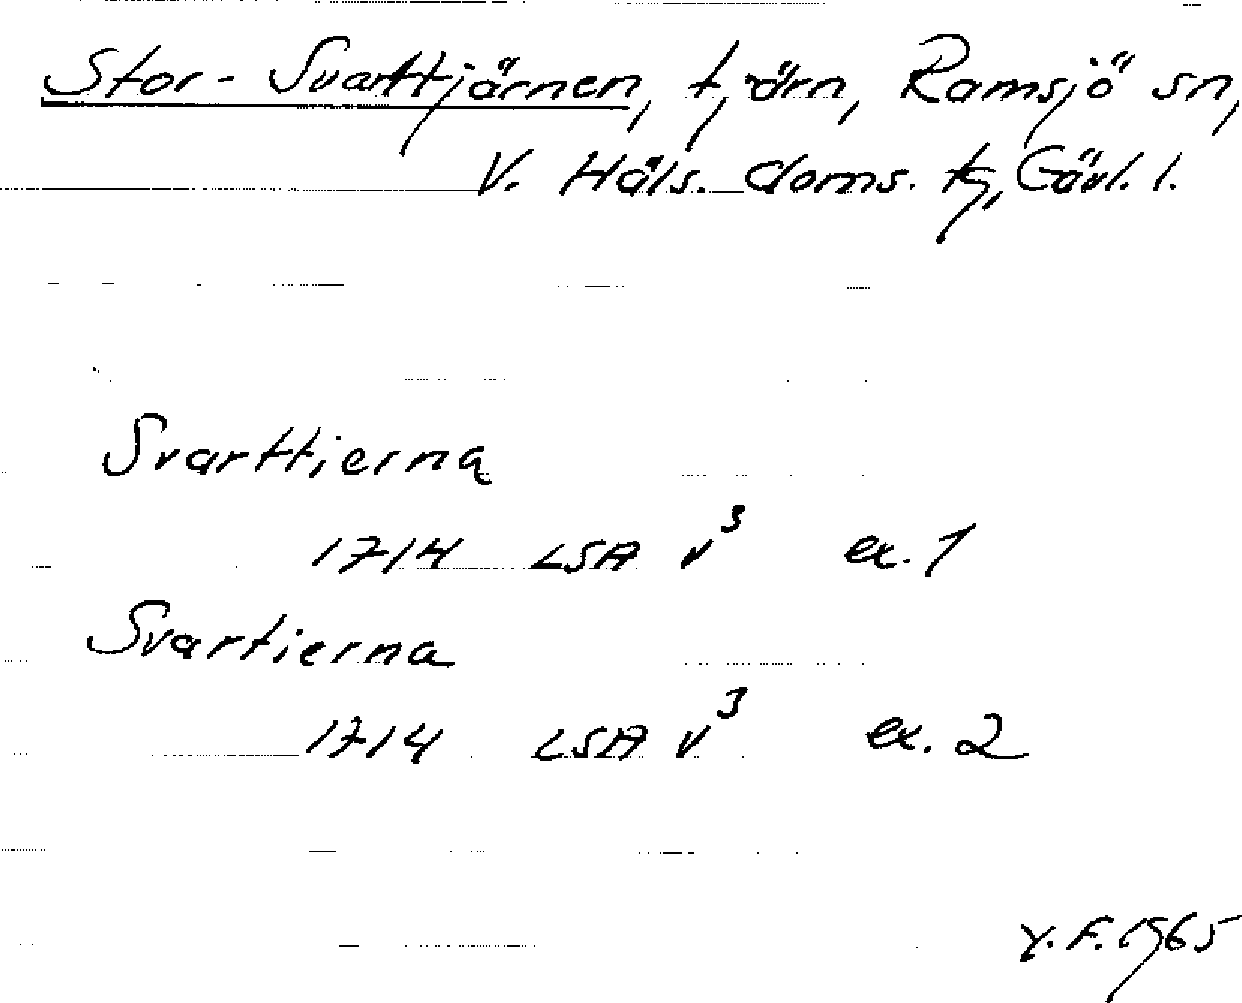 Stor-Svarttjärnen, tjärn, Ramsjö sn,
V. Häls. doms. tg, Gävl. l.
Svarttierna
1714 LSA v³ ex. 1
Svartierna
1714 LSA v³ ex. 2
Y. F. 1965